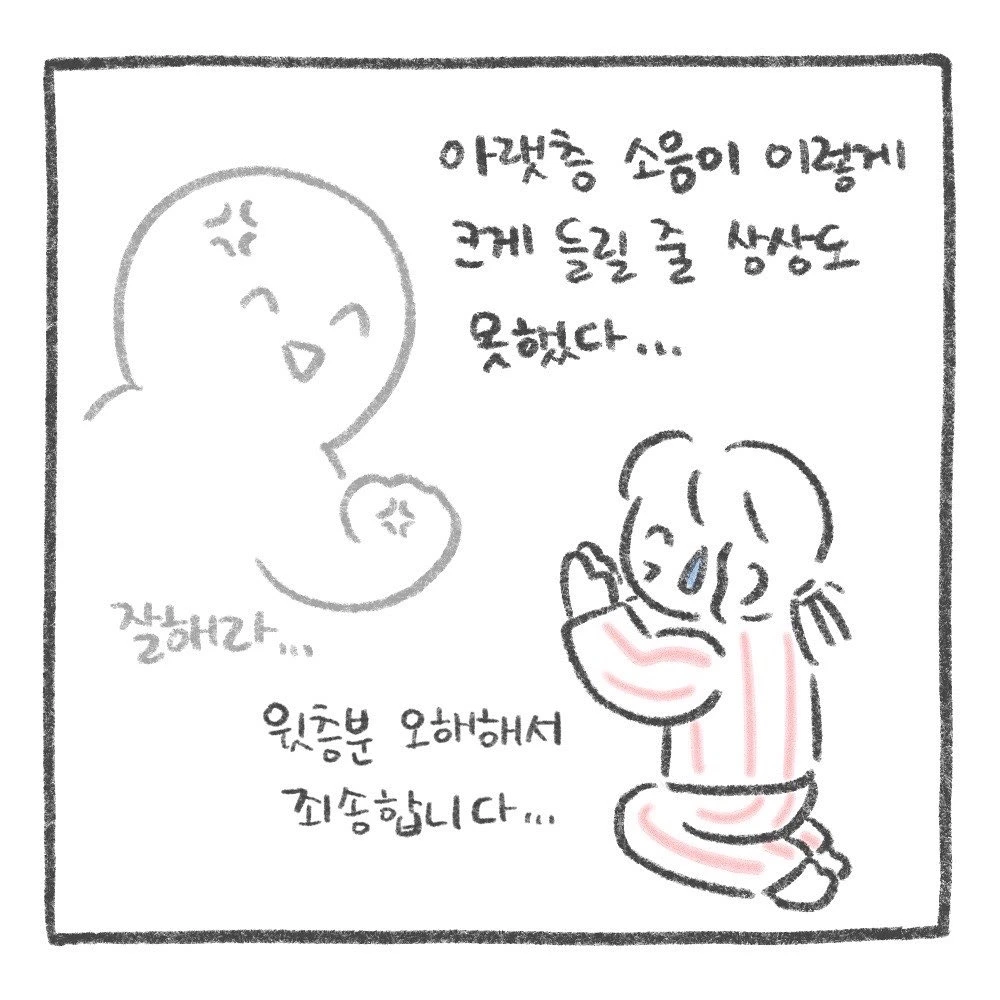 아랫층 소음이 이렇게
크게 들릴 줄 상상도
못했다...
잘해라...
윗층분 오해해서
죄송합니다...